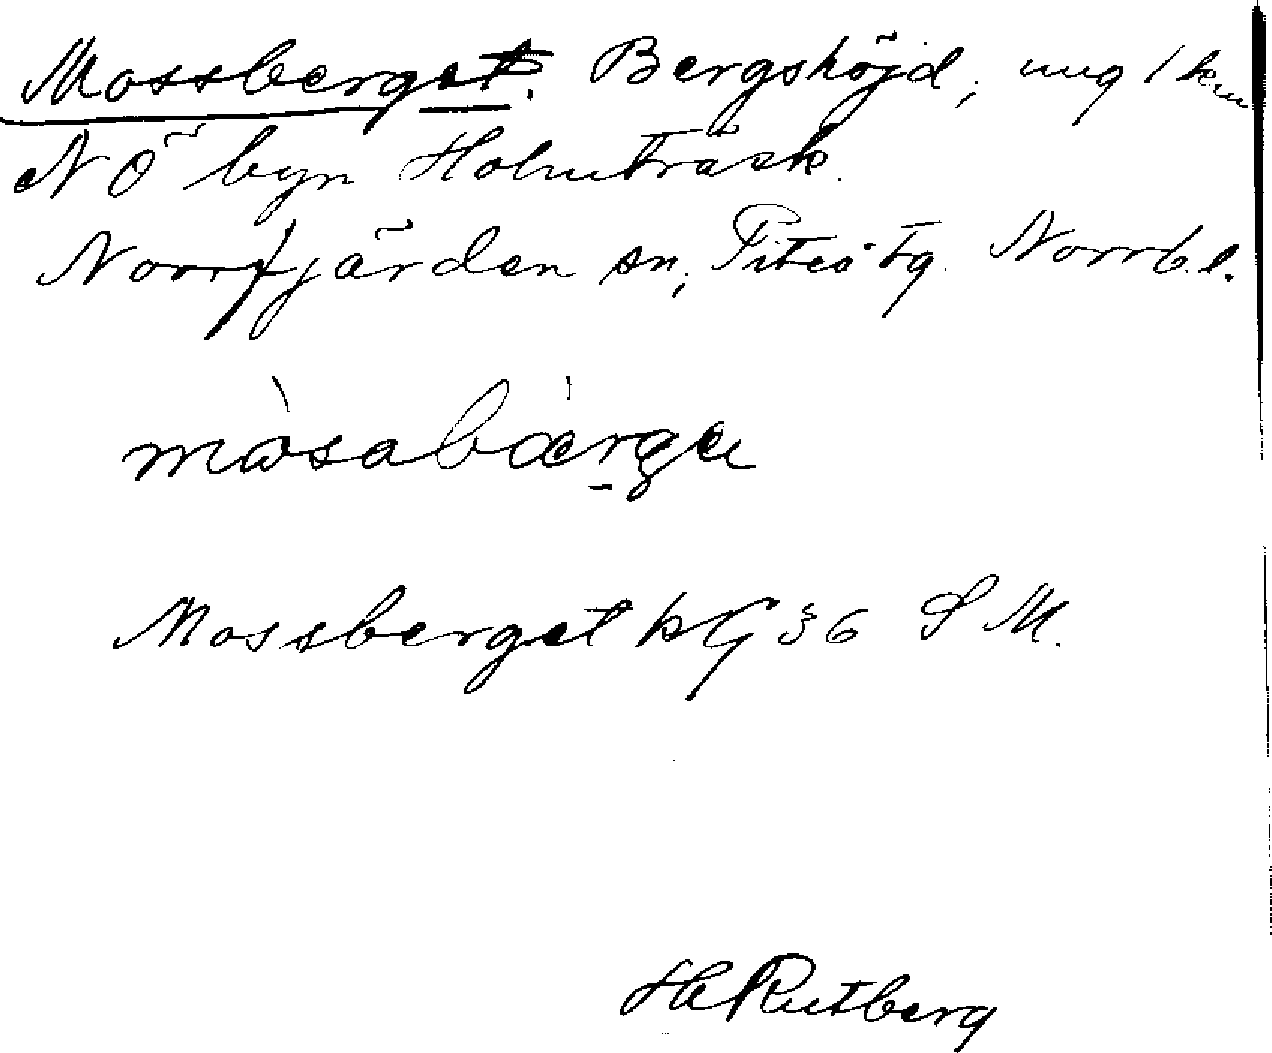 Mossberget. Bergshöjd, ung 1 km
NÖ byn Holmträsk.
Norrfjärden sn, Piteå tg. Norrb. l.
mòsabærge
Mossberget kG 36 S M.
H Rutberg